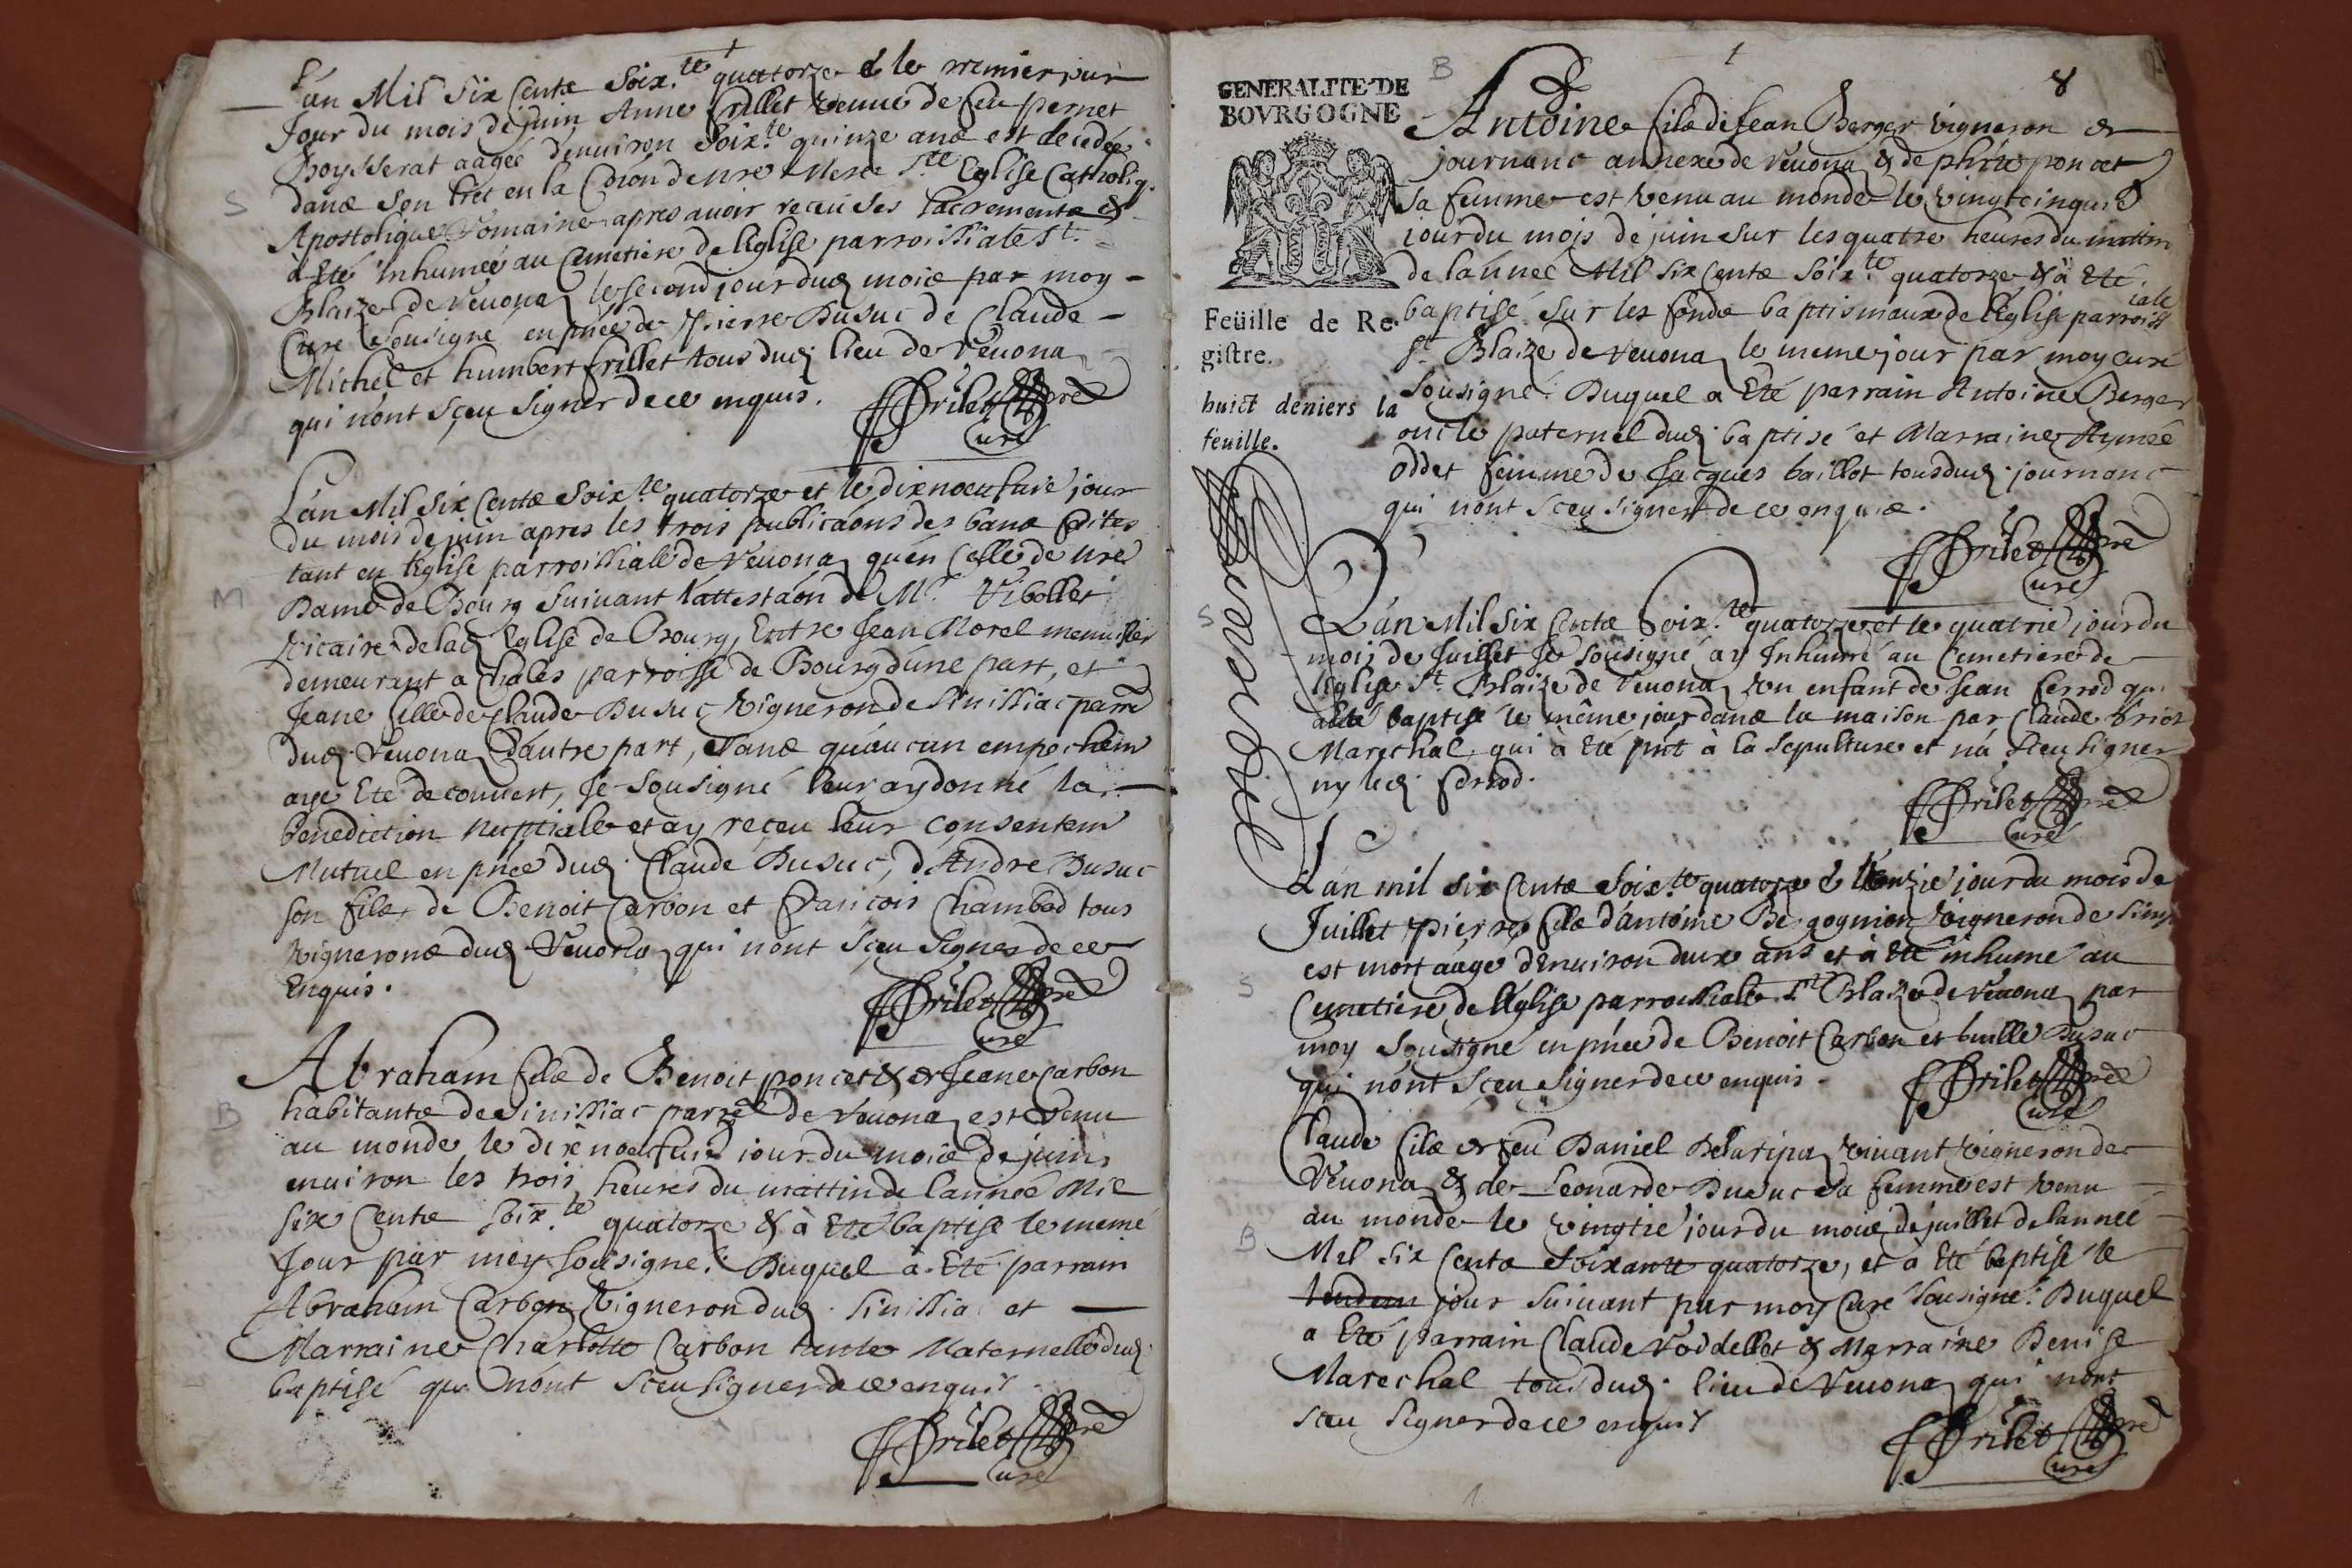 L'an Mil Six Cents Soix.te quatorze & le premier jour
Jour du mois de juin Anne frillet veuue de feu pernet
Boysserat aagée denuiron Soix.te quinze ans est decedée
dans Son lict en la Cõion de nre Mere S.te Eglise Catholiq.
Apostolique Romaine apres auoir receu Ses Sacrements &
à Eté Inhumée au Cemetiere de l'Eglise parroissiale S.t
Blaize de Veuona le second jour dud mois par moy
Curé Sousigné en pñce de Pierre Dusuc de Claude
Michel et humbert frillet tous dud lieu de Veuona
qui n'ont Sceu Signer de ce enquis.
Frilet pre
Curé
S
L'an Mil Six Cents Soix.te quatorze et le dixnoeufuie jour
du mois de juin apres les trois publicaõns des bans faites
tant en l'Eglise parroissialle de Veuona qu'en Celle de nre
Dame de Bourg Suiuant l'attestaõn de M.r Vibollet
Vicaire de lad Eglise de Bourg, Entre Jean Morel menuisier
demeurant a Chales parroisse de Bourg d'une part, et
Jeane fille de Claude Dusuc Vigneron de Sinissiac parre
dud Veuona d'autre part, Sans qu'aucun empechem
aye Eté decouuert, Je Sousigné leur ay donné la
benediction Nuptiale et ay receu leur Consentem
Mutuel en pñce dud Claude Dusuc, d'Andre Dusuc
son fils de Benoit Carbon et francois Chambod tous
Vignerons dud Veuona qui n'ont Sceu Signer de ce
Enquis.
Frilet pre
Curé
M
Abraham fils de Benoit poncet & de Jeane Carbon
habitants de Sinissiac parre de Veuona est venu
au monde le dixnoeufuie jour du mois de juin
enuiron les trois heures du mattin de l'année Mil
Six Cents Soix.te quatorze & à Eté baptisé le meme
Jour par moy Sousigné. Duquel a Eté parrain
Abraham Carbon Vigneron dud Sinissia et
Marraine Charlotte Carbon tante Maternelle dud
baptisé qui n'ont sceu signer de ce enquis
Frilet pre
Curé
B
GENERALITE DE
BOVRGOGNE
Feüille de Re-
gistre.
huict deniers la
feuille.
B
8
Antoine fils de Jean Berger Vigneron de
journanc annexe de Veuona & de phrie poncet
Sa femme est venu au monde le vingtcinquie
jour du mois de juin sur les quatre heures du mattin
de l'année Mil six cents Soix.te quatorze & à Eté
baptisé Sur les fonds baptismaux de l'Eglise parroissiale
S.t Blaize de Veuona le meme jour par moy curé
Sousigné. Duquel a Eté parrain Antoine Berger
oncle paternel dud baptisé et Marraine Aymée
Oddet femme de Jacques baillot tous dud journanc
qui n'ont sceu signer de ce enquis.
Frilet pre
Curé
S
L'an Mil Six Cents Soix.te quatorze et le quatrie jour du
mois de Juillet Je Sousigné ay Inhumé au Cemetiere de
l'Eglise S.t Blaize de Veuona Vn enfant de Jean ferrod qui
a Eté baptisé le même jour dans la maison par Claude
Marechal qui à Eté pnt à la Sepulture et n'a Sceu signer
ny led ferrod.
Frilet pre
Curé
L'an mil six Cents Soix.te quatorze & jour du mois de
Juillet Pierre fils d'antoine Vigneron de
est mort aagé d'Enuiron deux ans et à Eté inhumé au
Cemetiere de l'Eglise parroissiale S.t Blaize de Veuona par
moy Sousigné en pñce de Benoit Carbon et Dusuc
qui n'ont Sceu signer de ce enquis.
Frilet pre
Curé
S
Claude fils de feu Daniel Delaripa viuant Vigneron de
Veuona & de Leonarde Dusuc Sa femme est venu
au monde le vingtie jour du mois de juillet de l'annee
Mil Six Cents Soixante quatorze, et à Eté baptisé le
jour Suiuant par moy Curé Sousigné. Duquel
a Eté parrain Claude Voddellet & Marraine Denise
Marechal tous dud lieu de Veuona qui n'ont
sceu Signer de ce enquis
Frilet pre
Curé
B